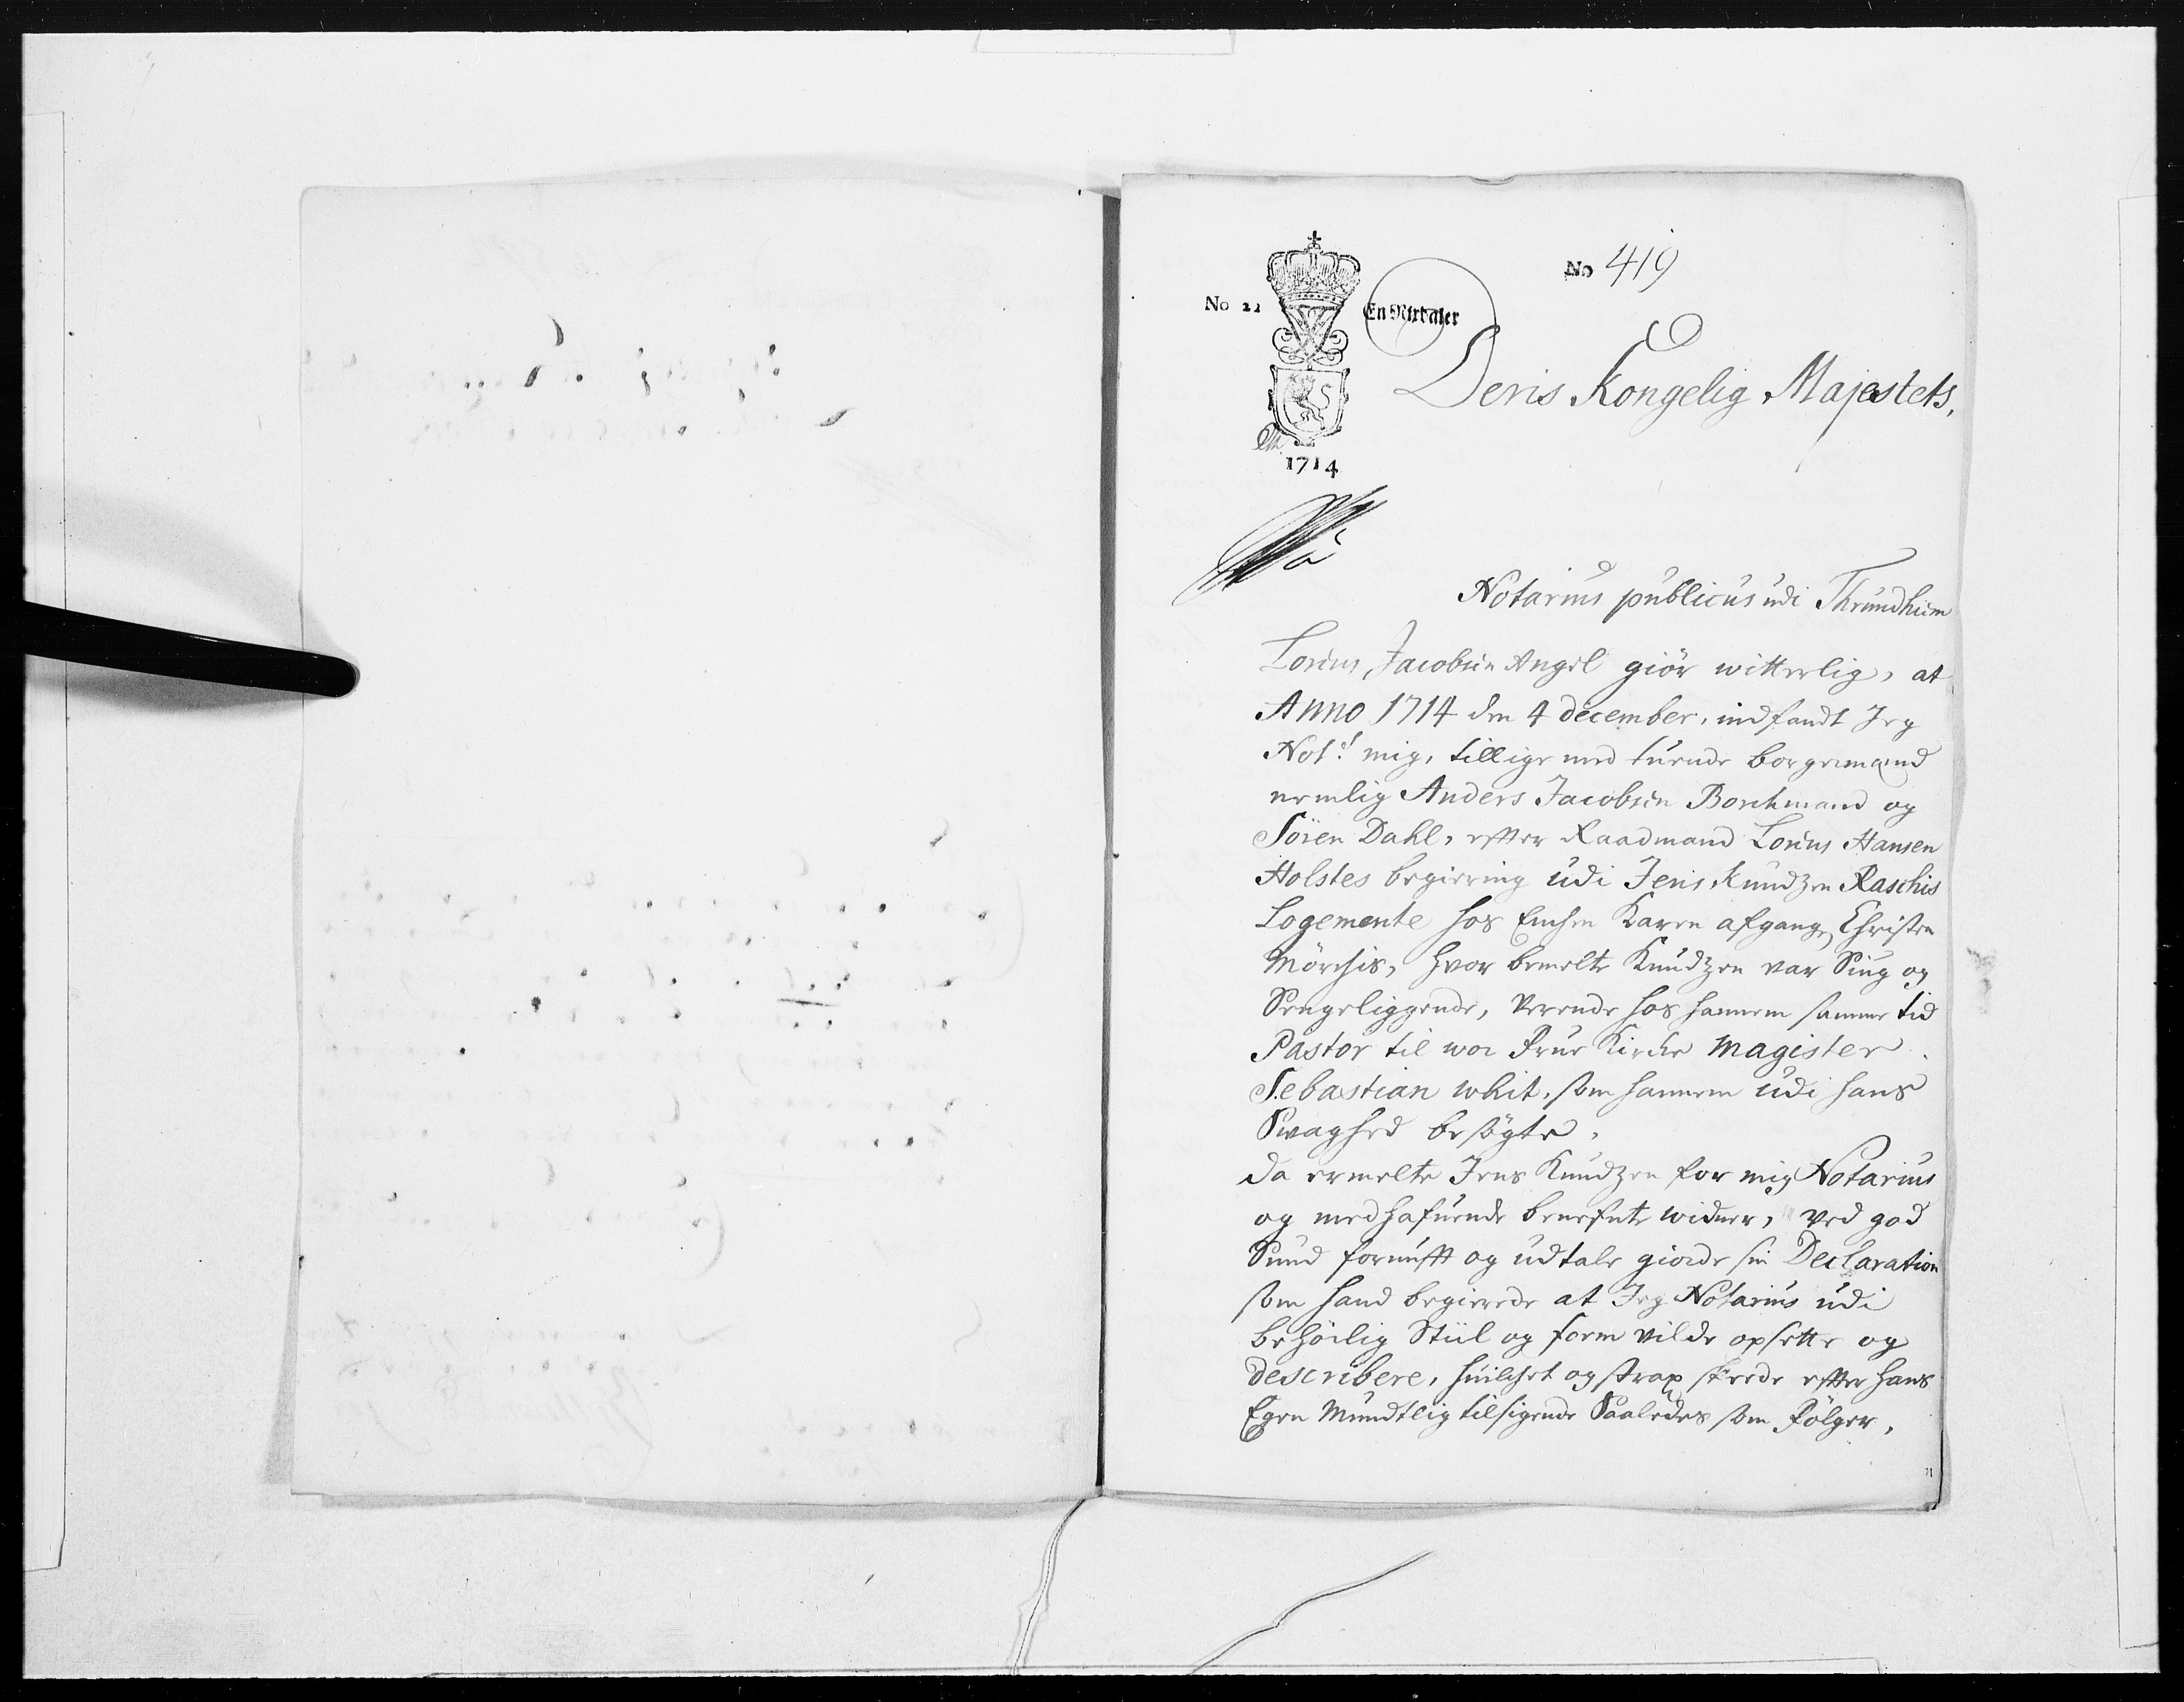 No 419
No 21
En Rixdaler
Deris Kongelig Majestets,
1714
Notarius publicus udi Thrundhiem
Lorens Jacobsen Angel giör witterlig, at
Anno 1714 den 4 december, indfandt Jeg
Not: mig, tillige med tuende borgermænd
nemlig Anders Jacobsen Borchmand og
Sören Dahl, effter Raadmand Lorens Hansen
Holstes begiering udi Jens Kundzen Raschis
Logemente hos Enchen Karen afgangne Christen
Mörchis, hvor bemelte Knudzen var Siug og
Sengeliggende, Verende hos hannem samme tid
Pastor til wor Frue Kirche Magister
Sebastian whit, som hannem udi hans
Swaghed besögte,
da ermelte Jens Knudzen for mig Notarius
og medhafuende benefnte widner, ved god
Sund fornufft og udtale giorde sin Declaration
som hand begierede at Jeg Notarius udi
behörlig Stiil og form vilde opsette og
describere, huilchet og strax skeede effter hans
Egen Mundtlig tilsigende Saaledes som Fölger,
71